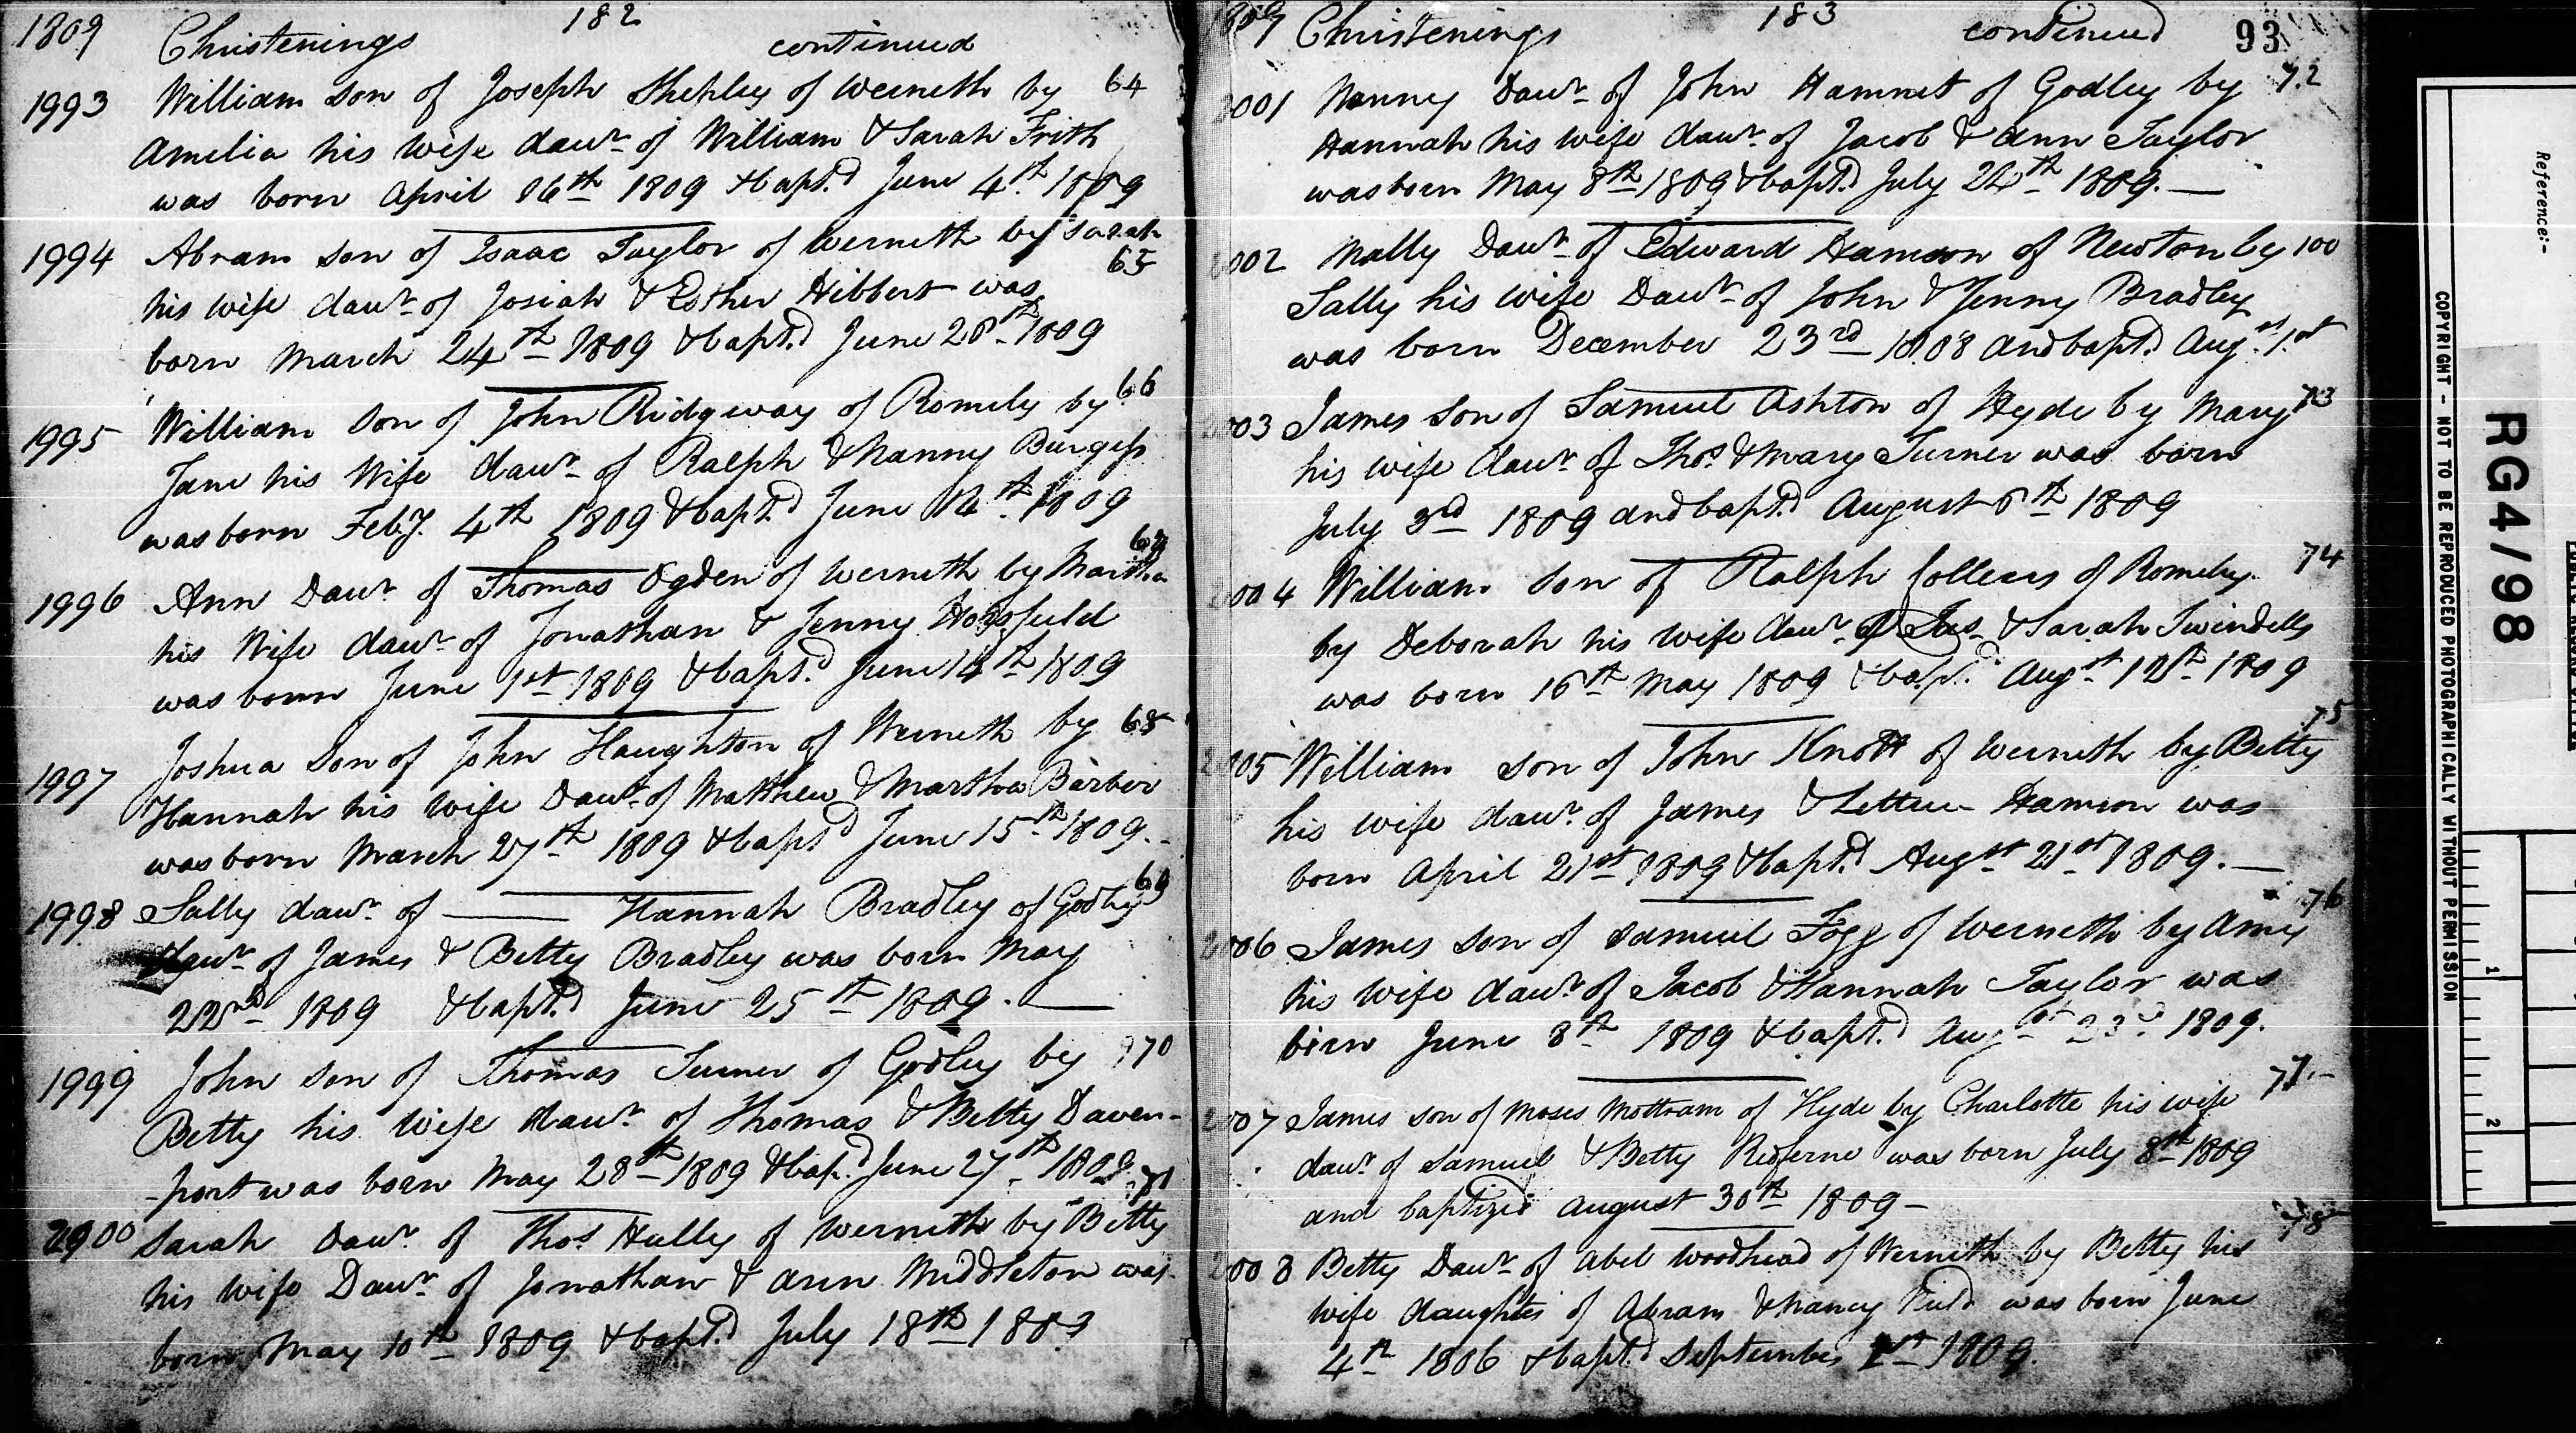 1809 Christenings 182 continued
1993 William son of Joseph Shepley of Werneth by 64
Amelia his wife dawr. of William & Sarah Frith
was born April 16th 1809 & bapt.d June 4th 1809
1994 Abram son of Isaac Taylor of Werneth by Sarah
65
his wife dawr. of Josiah & Esther Hibbert was
born March 24th 1809 & bapt.d June 1809
1995 William son of John Ridgway of Romily by 66
Jane his Wife dawr. of Ralph & Nanny Burgess
was born Feb.y 4th 1809 & bapt.d June 1809
1996 Ann Dawr. of Thomas Ogden of Werneth by Martha
his Wife dawr. of Jonathan & Jenny Horsfield
was born June 1st 1809 & bapt.d June 14th 1809
1997 Joshua Son of John Haughton of Werneth by 68
Hannah his wife Dawr. of Matthew & Martha Barber
was born March 27th 1809 & bapt.d June 15th 1809.
1998 Sally dawr. of —— Hannah Bradley of Godley 69
dawr. of James & Betty Bradley was born May
22nd 1809 & bapt.d June 25th 1809. —
1999 John son of Thomas Turner of Godley by 70
Betty his wife dawr. of Thomas & Betty Daven-
-port was born May 28th 1809 & bap.d June 27th 1809
71
2000 Sarah Dawr. of Thos. Hully of Werneth by Betty
his wife Dawr. of Jonathan & Ann Middleton was
born May 10th 1809 & bapt.d July 18th 1809
1809 Christenings 183 continued 93
2001 Nanny Dawr. of John Hamnet of Godley by 72
Hannah his wife dawr. of Jacob & Ann Taylor
was born May 8th 1809 & bapt.d July 24th 1809. —
2002 Mally Dawr. of Edward Hamson of Newton by 100
Sally his wife Dawr. of John & Jenny Bradley
was born December 23rd 1808 and bapt.d Aug.st 1st
2003 James son of Samuel Ashton of Hyde by Mary 73
his wife dawr. of Thos. & Mary Turner was born
July 3rd 1809 and bapt.d August 1809
2004 William son of Ralph Colleus of Romily 74
by Deborah his wife dawr. of Jas. & Sarah Swindells
was born 16th May 1809 & bapt.d Augst. 1809
75
2005 William son of John Knott of Werneth by Betty
his wife dawr. of James & Lettice Hamson was
born April 21st 1809 & bapt.d Augst 21st 1809. —
76
2006 James son of Samuel Fogg of Werneth by Amy
his wife dawr. of Jacob & Hannah Taylor was
born June 8th 1809 & bapt.d Augst 23d 1809.
2007 James son of Moses Mottram of Hyde by Charlotte his wife 77
dawr. of Samuel & Betty Redferne was born July 8th 1809
and baptized August 30th 1809 –
78
2008 Betty Dawr. of Abel Woodhead of Werneth by Betty his
wife daughter of Abram & Nancy was born June
4th 1806 & bapt.d September 1st 1809.
Reference:-
RG4/98
COPYRIGHT - NOT TO BE REPRODUCED PHOTOGRAPHICALLY WITHOUT PERMISSION
1
2